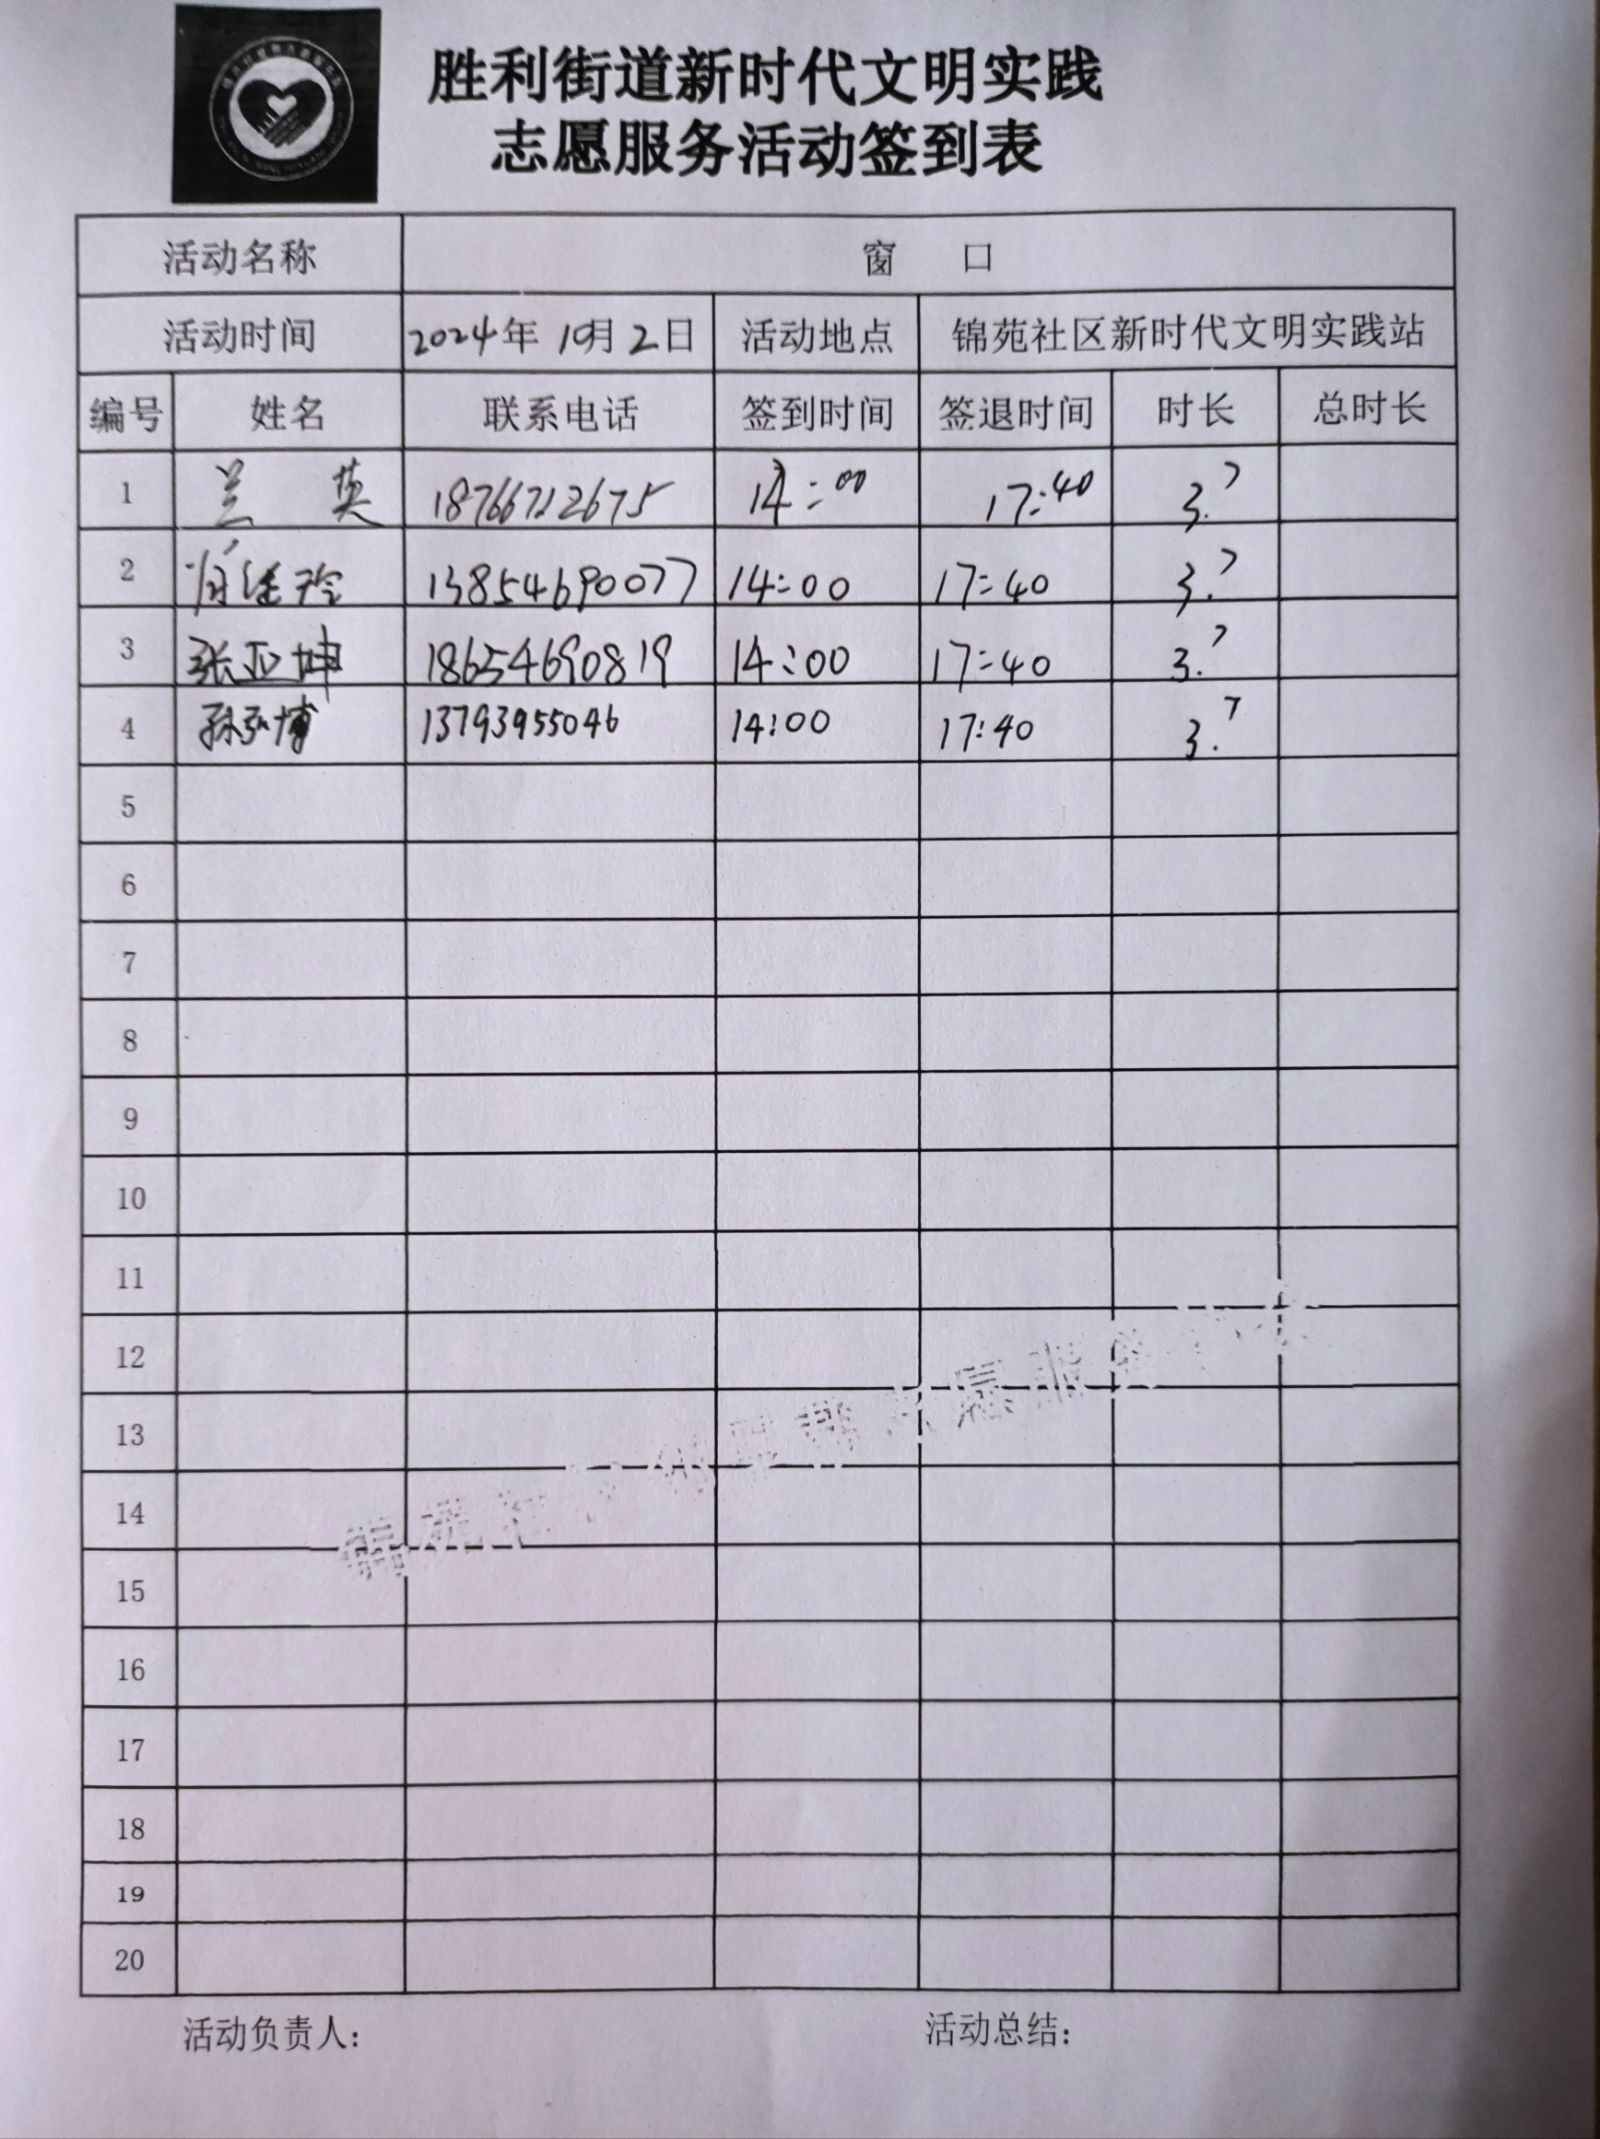 胜利街道新时代文明实践
志愿服务活动签到表
活动名称 窗 口
活动时间 2024年 10月 2日 活动地点 锦苑社区新时代文明实践站
编号 姓名 联系电话 签到时间 签退时间 时长 总时长
1 兰 英 18766712675 14:00 17:40 3.7
2 13854690077 14:00 17:40 3.7
3 张亚坤 18654690819 14:00 17:40 3.7
4 孙弘博 13793955046 14:00 17:40 3.7
5
6
7
8
9
10
11
12
13
14
15
16
17
18
19
20
活动负责人: 活动总结: